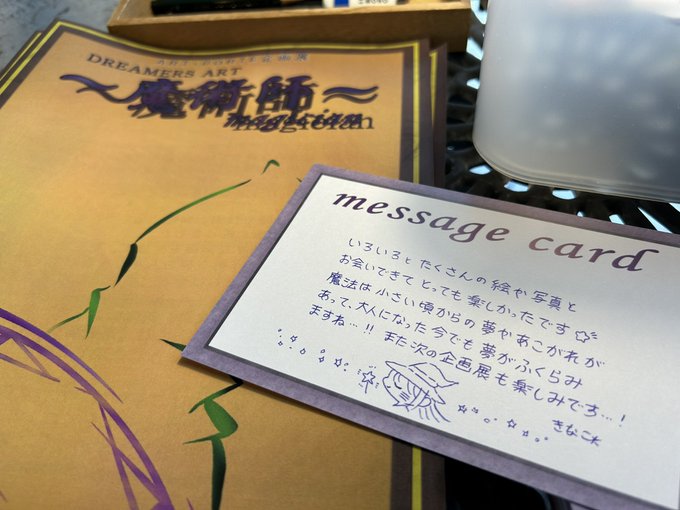 DREAMERS ART
～魔術師～
magician
message card
いろいろと たくさんの 絵や 写真と
お会いできて とっても 楽しかったです☆
魔法は 小さい頃からの 夢や あこがれが
あって、大人になった 今でも 夢が ふくらみ
ますね…!! また次の 企画展も 楽しみです…!
きなこ